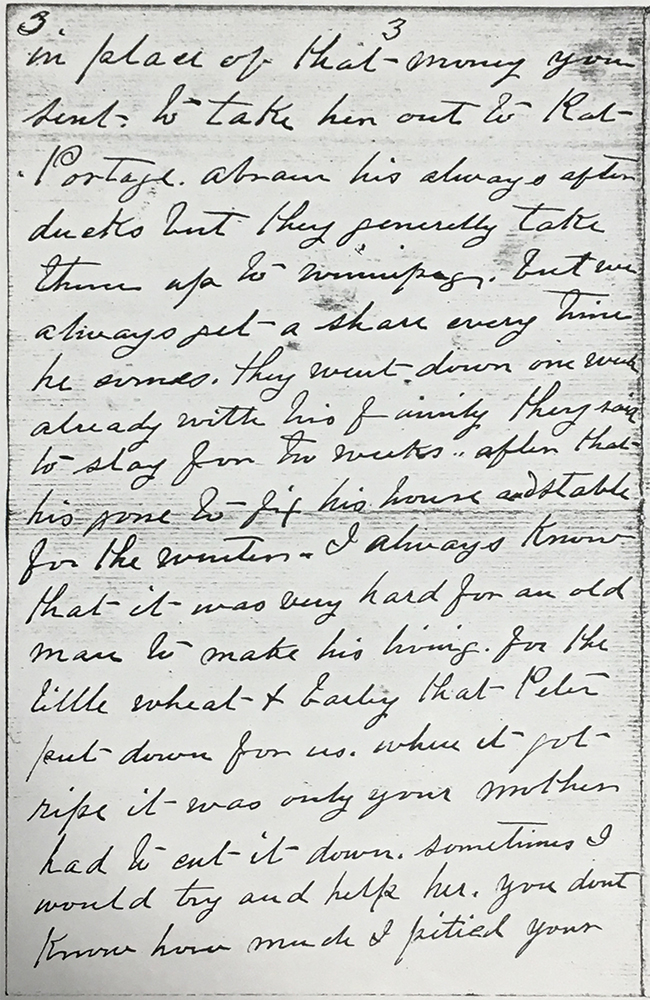 3 3
in place of that money you
sent. to take her out to Rat
Portage. abram his always after
ducks but they generelly take
them up to winnipeg. but we
always get a share every time
he comes. they went down one week
already with his family they said
to stay for two weeks.. after that
his gone to fix his house and stable
for the winter. I always Know
that it was very hard for an old
man to make his living. for the
little wheat & barley that Peter
put down for us. when it got
ripe it was only your mother
had to cut it down. sometimes I
would try and help her. you dont
Know how much I pitied your